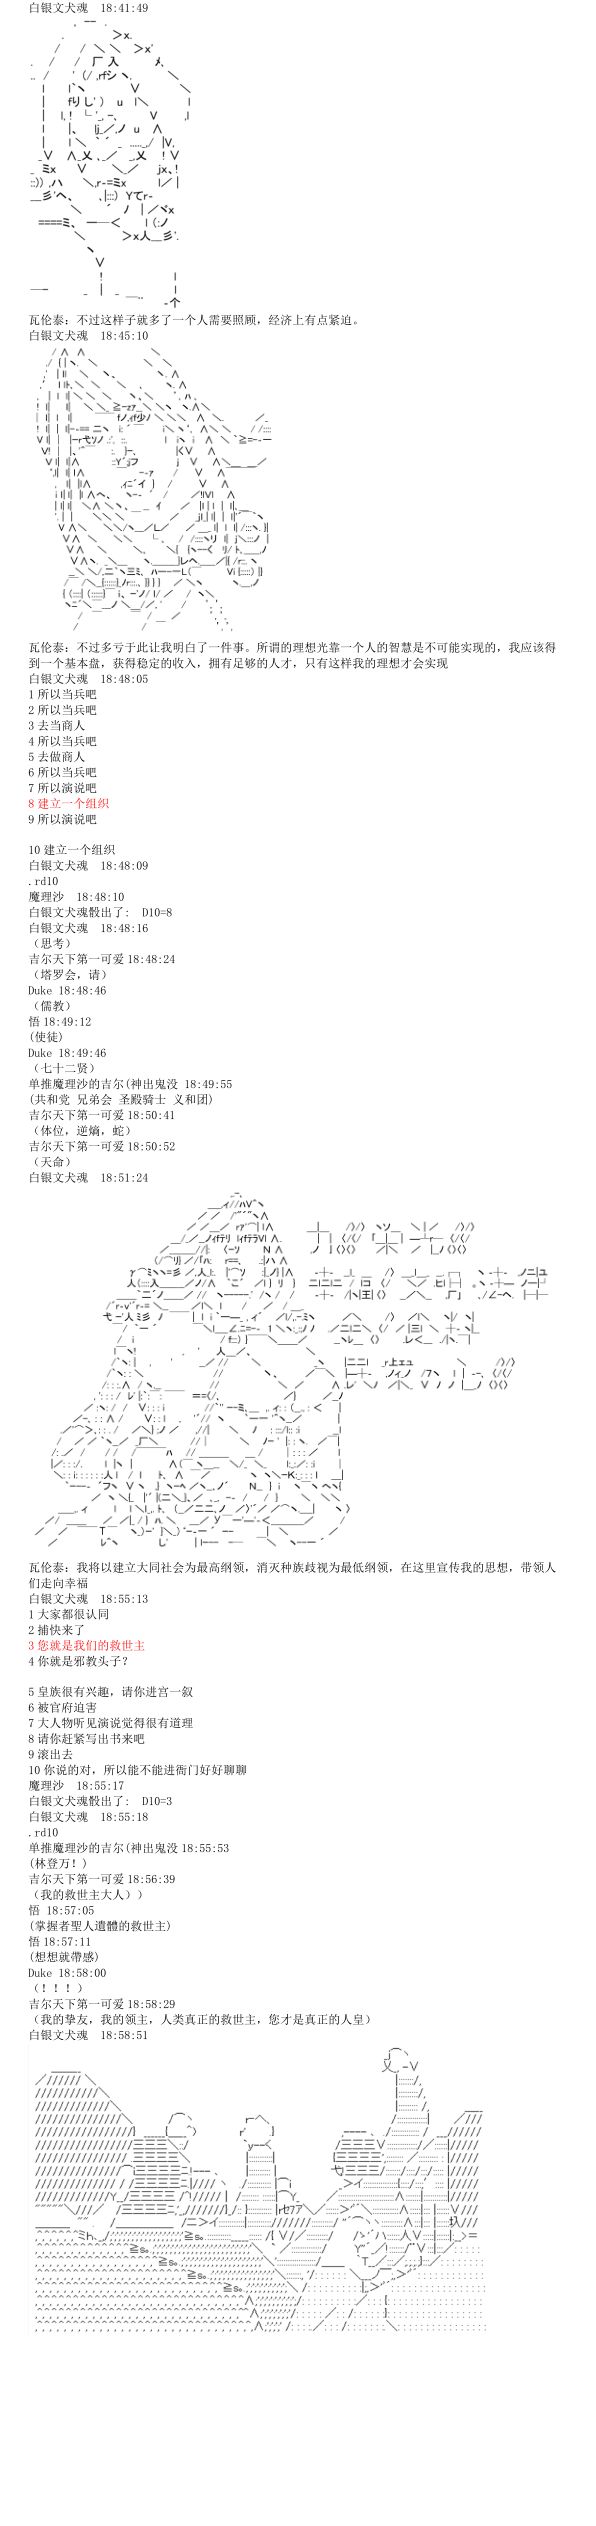 白银文犬魂 18:41:49
瓦伦泰：不过这样子就多了一个人需要照顾，经济上有点紧迫。
白银文犬魂 18:45:10
瓦伦泰：不过多亏于此让我明白了一件事。所谓的理想光靠一个人的智慧是不可能实现的，我应该得
到一个基本盘，获得稳定的收入，拥有足够的人才，只有这样我的理想才会实现
白银文犬魂 18:48:05
1 所以当兵吧
2 所以当兵吧
3 去当商人
4 所以当兵吧
5 去做商人
6 所以当兵吧
7 所以演说吧
8 建立一个组织
9 所以演说吧
10 建立一个组织
白银文犬魂 18:48:09
.rd10
魔理沙 18:48:10
白银文犬魂骰出了： D10=8
白银文犬魂 18:48:16
（思考）
吉尔天下第一可爱 18:48:24
（塔罗会，请）
Duke 18:48:46
（儒教）
悟 18:49:12
(使徒)
Duke 18:49:46
（七十二贤）
单推魔理沙的吉尔(神出鬼没 18:49:55
(共和党 兄弟会 圣殿骑士 义和团)
吉尔天下第一可爱 18:50:41
（体位，逆熵，蛇）
吉尔天下第一可爱 18:50:52
（天命）
白银文犬魂 18:51:24
瓦伦泰：我将以建立大同社会为最高纲领，消灭种族歧视为最低纲领，在这里宣传我的思想，带领人
们走向幸福
白银文犬魂 18:55:13
1 大家都很认同
2 捕快来了
3 您就是我们的救世主
4 你就是邪教头子？
5 皇族很有兴趣，请你进宫一叙
6 被官府迫害
7 大人物听见演说觉得很有道理
8 请你赶紧写出书来吧
9 滚出去
10 你说的对，所以能不能进衙门好好聊聊
魔理沙 18:55:17
白银文犬魂骰出了： D10=3
白银文犬魂 18:55:18
.rd10
单推魔理沙的吉尔(神出鬼没 18:55:53
(林登万！)
吉尔天下第一可爱 18:56:39
（我的救世主大人））
悟 18:57:05
(掌握者聖人遺體的救世主)
悟 18:57:11
(想想就帶感)
Duke 18:58:00
（！！！）
吉尔天下第一可爱 18:58:29
（我的挚友，我的领主，人类真正的救世主，您才是真正的人皇）
白银文犬魂 18:58:51